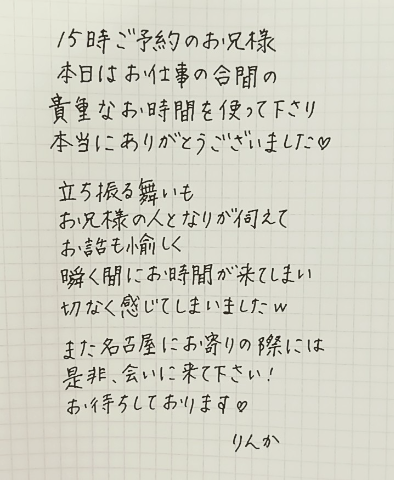 15時ご予約のお兄様
本日はお仕事の合間の
貴重なお時間を使って下さり
本当にありがとうございました♡
立ち振る舞いも
お兄様の人となりが伺えて
お話も愉しく
瞬く間にお時間が来てしまい
切なく感じてしまいましたw
また名古屋にお寄りの際には
是非、会いに来て下さい!
お待ちしております♡
りんか